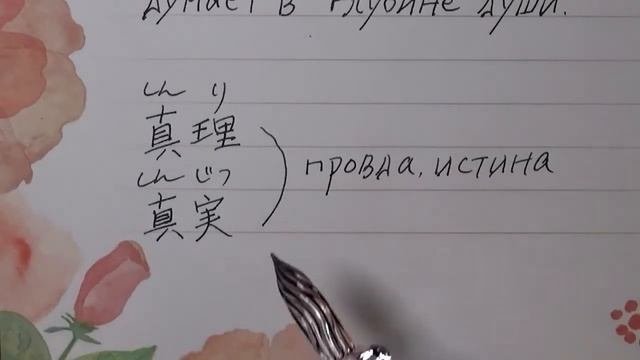 думает в глубине души.
しん り
真理
しんじつ
真実
провда, истина